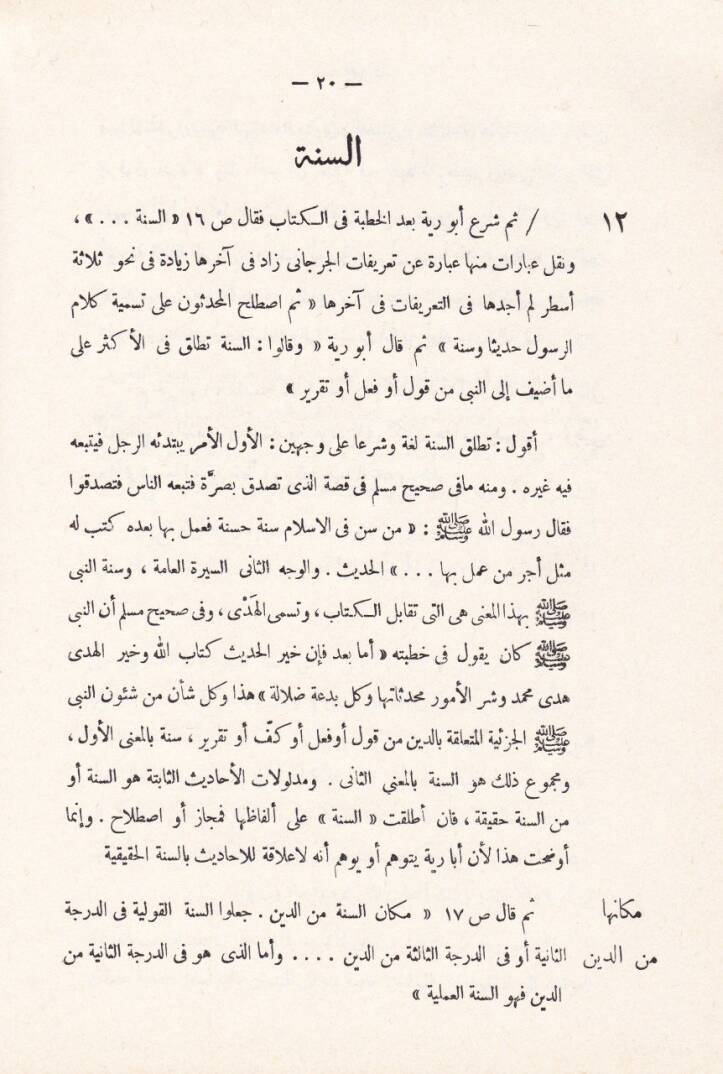 — ٢٠ —
السنة
١٢ / ثم شرع أبو رية بعد الخطبة فى الكتاب فقال ص ١٦ « السنة ... » ،
ونقل عبارات منها عبارة عن تعريفات الجرجانى زاد فى آخرها زيادة فى نحو ثلاثة
أسطر لم أجدها فى التعريفات فى آخرها « ثم اصطلح المحدثون على تسمية كلام
الرسول حديثا وسنة » ثم قال أبو رية « وقالوا : السنة تطلق فى الأكثر على
ما أضيف إلى النبى من قول أو فعل أو تقرير »
أقول : تطلق السنة لغة وشرعا على وجهين : الأول الأمر يبتدئه الرجل فيتبعه
فيه غيره . ومنه مافى صحيح مسلم فى قصة الذى تصدق بصرَّة فتبعه الناس فتصدقوا
فقال رسول الله ﷺ : « من سن فى الاسلام سنة حسنة فعمل بها بعده كتب له
مثل أجر من عمل بها ... » الحديث . والوجه الثانى السيرة العامة ، وسنة النبى
ﷺ بهذا المعنى هى التى تقابل الكتاب ، وتسمى الهَدْى ، وفى صحيح مسلم أن النبى
ﷺ كان يقول فى خطبته « أما بعد فإن خير الحديث كتاب الله وخير الهدى
هدى محمد وشر الأمور محدثاتها وكل بدعة ضلالة » هذا وكل شأن من شئون النبى
ﷺ الجزئية المتعلقة بالدين من قول أوفعل أو كفّ أو تقرير ، سنة بالمعنى الأول ،
ومجموع ذلك هو السنة بالمعني الثانى . ومدلولات الأحاديث الثابتة هو السنة أو
من السنة حقيقة ، فان أطلقت « السنة » على ألفاظها فمجاز أو اصطلاح . وإنما
أوضحت هذا لأن أبا رية يتوهم أو يوهم أنه لاعلاقة للاحاديث بالسنة الحقيقية
مكانها ثم قال ص ١٧ « مكان السنة من الدين . جعلوا السنة القولية فى الدرجة
من الدين الثانية أو فى الدرجة الثالثة من الدين .... وأما الذى هو فى الدرجة الثانية من
الدين فهو السنة العملية »